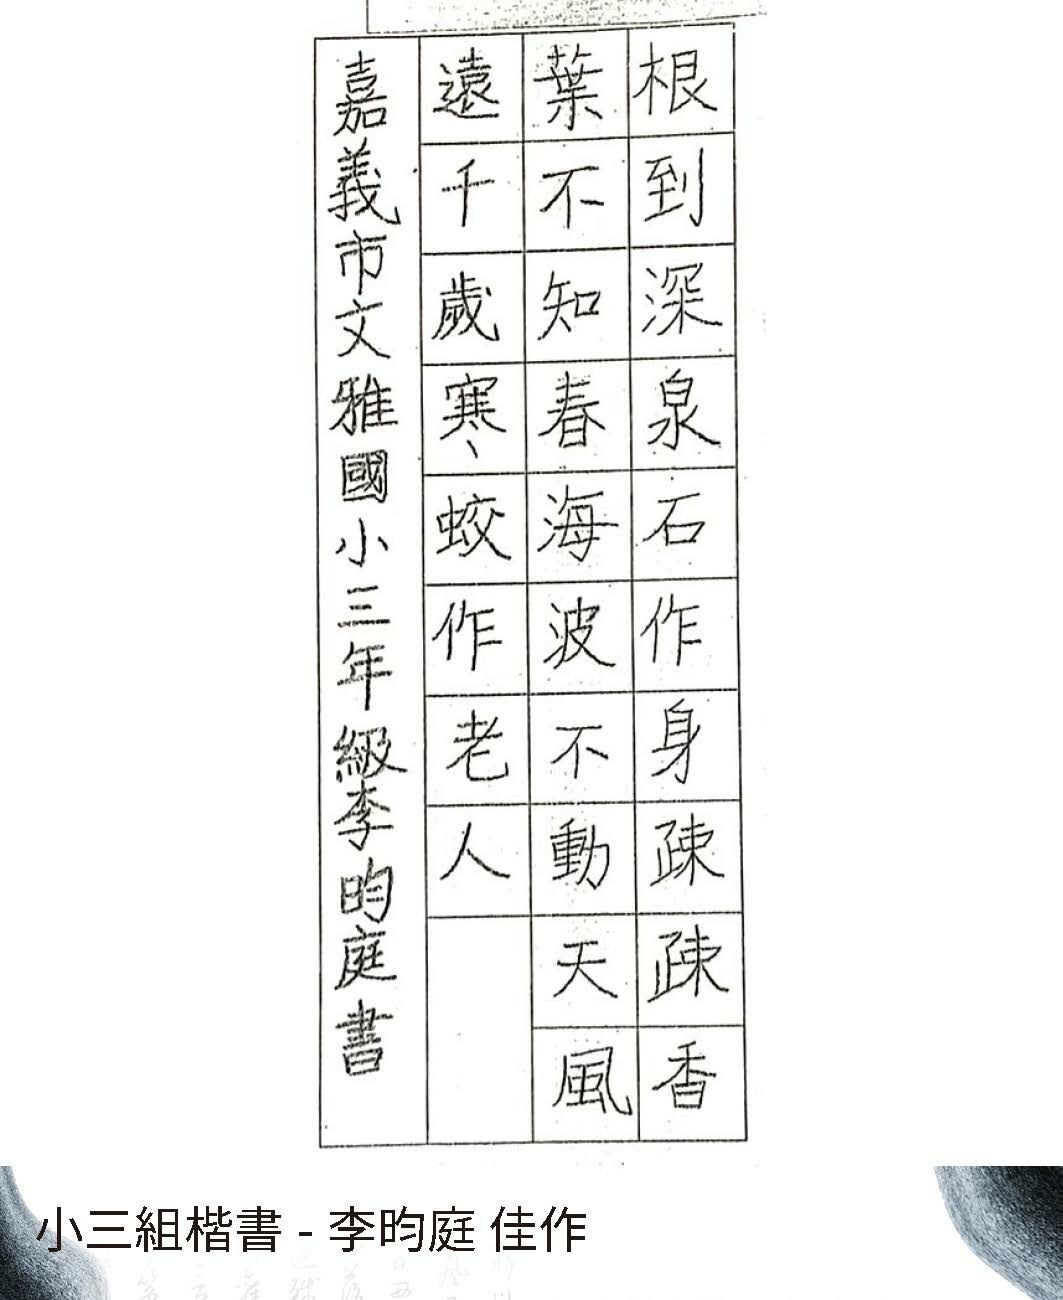 根到深泉石作身疎疎香
葉不知春海波不動天風
遠千歲寒蛟作老人
嘉義市文雅國小三年級李昀庭書
小三組楷書 - 李昀庭 佳作